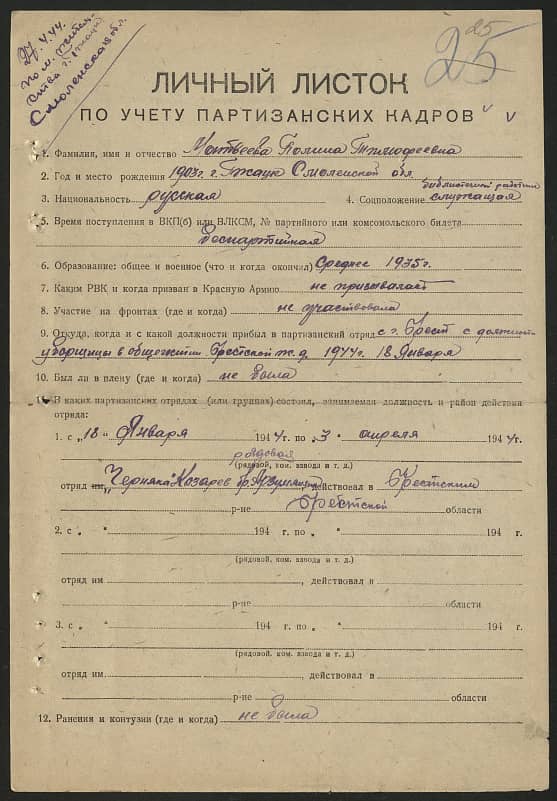 25
25
27.4.44.
по м. житель-
ства г. Гжатск
Смоленская обл.
ЛИЧНЫЙ ЛИСТОК
ПО УЧЕТУ ПАРТИЗАНСКИХ КАДРОВ
1. Фамилия, имя и отчество Матвеева Полина Тимофеевна
2. Год и место рождения 1903 г. г. Гжатск Смоленской обл.
библиотечный работник
3. Национальность русская 4. Соцположение служащая
5. Время поступления в ВКП(б) или ВЛКСМ, № партийного или комсомольского билета
беспартийная
6. Образование: общее и военное (что и когда окончил) Среднее 1935 г.
7. Каким РВК и когда призван в Красную Армию не призывалась
8. Участие на фронтах (где и когда) не участвовала
9. Откуда, когда и с какой должности прибыл в партизанский отряд с г. Брест с должности
уборщицы в общежитии Брестской ж.д. 1944 г. 18 Января
10. Был ли в плену (где и когда) не была
11. В каких партизанских отрядах (или группах) состоял, занимаемая должность и район действия
отряда:
1. с „18" Января 1944 г. по „3" апреля 1944 г.
рядовая
(рядовой, ком. взвода и т. д.)
отряд им. "Черняка" , действовал в Брестским
р-не Брестской области
2. с „ " 194 г. по „ " 194 г.
(рядовой, ком. взвода и т. д.)
отряд им , действовал в
р-не области
3. с „ " 194 г. по „ " 194 г.
(рядовой, ком. взвода и т. д.)
отряд им. , действовал в
р-не области
12. Ранения и контузии (где и когда) не была